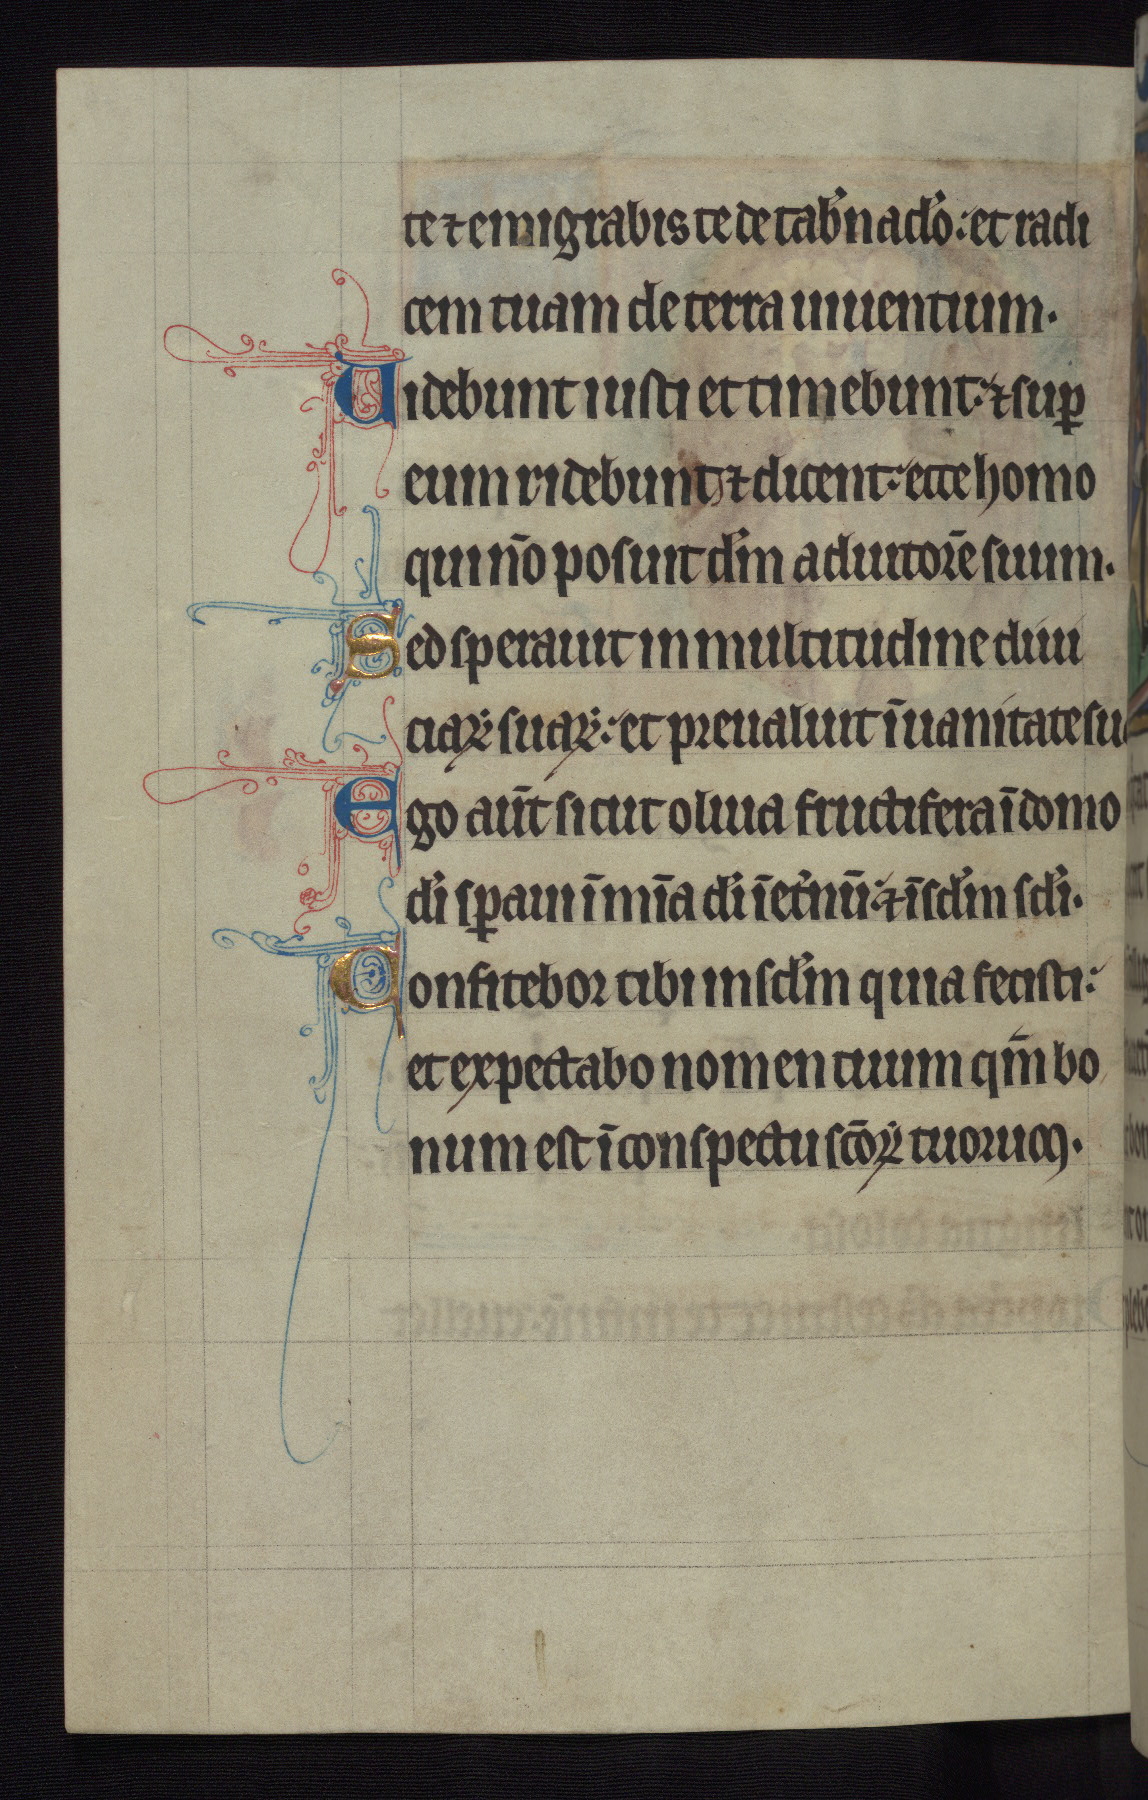 te ⁊ emigrabis te de tab̾nac̾lo: et radi
cem tuam de terra uiuentium.
Uidebunt iusti et timebunt: ⁊ suꝑ
eum ridebunt ⁊ dicent: ecce homo
qui no᷒n posuit dn̄m adiutorē suum.
Sed sperauit in multitudine diui
ciaꝝ suaꝝ: et preualuit ī uanitate su
Ego aūt sicut oliua fructifera ī domo
di̾ sꝑaui ī mīa di̾ ī et̾nū: ⁊ ī sc̾lm sc̾li.
Confitebor tibi in sc̾lm quia fecisti:
et expectabo nomen tuum qm̄ bo
num est ī conspectu sc̄oꝝ tuorum.